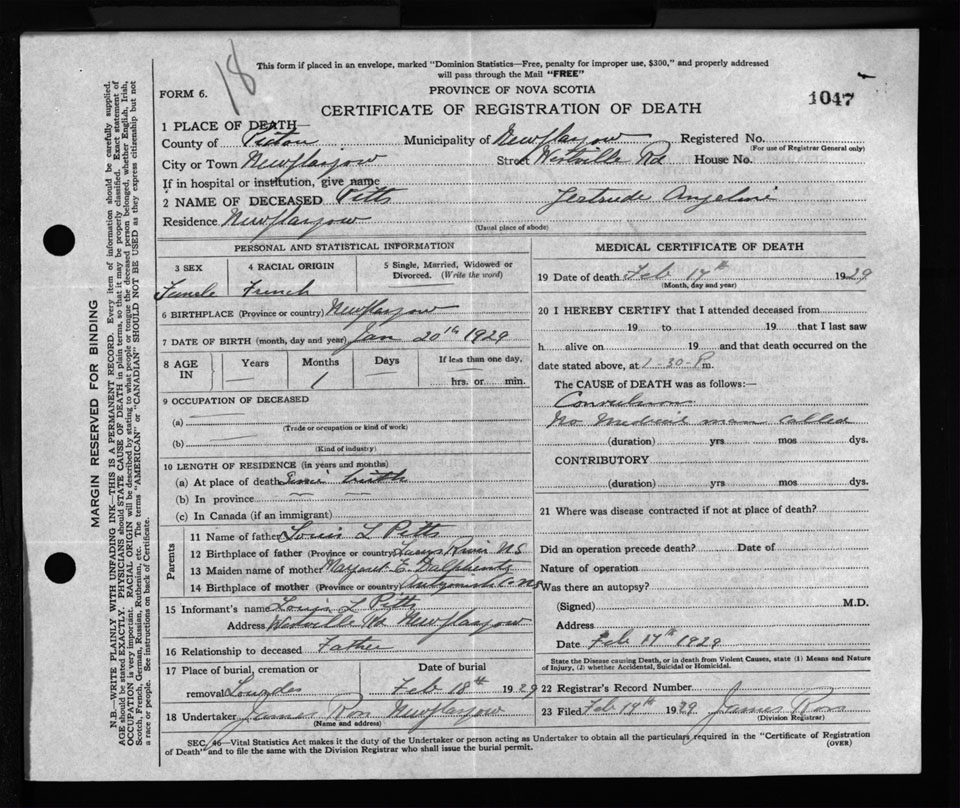 18
This form if placed in an envelope, marked "Dominion Statistics—Free, penalty for improper use, $300," and properly addressed
will pass through the Mail "FREE"
FORM 6.
PROVINCE OF NOVA SCOTIA
CERTIFICATE OF REGISTRATION OF DEATH
1047
1 PLACE OF DEATH—
County of Pictou Municipality of New Glasgow Registered No.
(For use of Registrar General only)
City or Town New Glasgow Street Westville Rd House No.
If in hospital or institution, give name
2 NAME OF DECEASED Pitts Gertrude Angeline
Residence New Glasgow
(Usual place of abode)
PERSONAL AND STATISTICAL INFORMATION
3 SEX 4 RACIAL ORIGIN 5 Single, Married, Widowed or
Divorced. (Write the word)
Female French
6 BIRTHPLACE (Province or country) New Glasgow
7 DATE OF BIRTH (month, day and year) Jan 20th 1929
8 AGE IN Years Months Days If less than one day,
— 1 — hrs. or min.
9 OCCUPATION OF DECEASED
(a) —
(Trade or occupation or kind of work)
(b) —
(Kind of industry)
10 LENGTH OF RESIDENCE (in years and months)
(a) At place of death Since birth
(b) In province — —
(c) In Canada (if an immigrant)
Parents
11 Name of father Louis L Pitts
12 Birthplace of father (Province or country) River N.S
13 Maiden name of mother Margaret E.
14 Birthplace of mother (Province or country) Antigonish Co NS
15 Informant's name Louis L Pitts
Address Westville Rd New Glasgow
16 Relationship to deceased Father
17 Place of burial, cremation or Date of burial
removal Lourdes Feb 18th 1929
18 Undertaker James Ross New Glasgow
(Name and address)
MEDICAL CERTIFICATE OF DEATH
19 Date of death Feb 17th 1929
(Month, day and year)
20 I HEREBY CERTIFY that I attended deceased from
19 to 19 that I last saw
h alive on 19 and that death occurred on the
date stated above, at 1-30-P m.
The CAUSE of DEATH was as follows:—
Convulsions
No Medical man called
(duration) yrs mos dys.
CONTRIBUTORY
(duration) yrs mos dys.
21 Where was disease contracted if not at place of death?
Did an operation precede death? Date of
Nature of operation
Was there an autopsy?
(Signed) M.D.
Address
Date Feb 17th 1929
State the Disease causing Death, or in death from Violent Causes, state (1) Means and Nature
of Injury, (2) whether Accidental, Suicidal or Homicidal.
22 Registrar's Record Number
23 Filed Feb 17th 1929 James Ross
(Division Registrar)
SEC. 46—Vital Statistics Act makes it the duty of the Undertaker or person acting as Undertaker to obtain all the particulars required in the "Certificate of Registration
of Death" and to file the same with the Division Registrar who shall issue the burial permit.
(OVER)
MARGIN RESERVED FOR BINDING
N.B.—WRITE PLAINLY WITH UNFADING INK—THIS IS A PERMANENT RECORD. Every item of information should be carefully supplied.
AGE should be stated EXACTLY. PHYSICIANS should STATE CAUSE OF DEATH in plain terms, so that it may be properly classified. Exact statement of
OCCUPATION is very important. RACIAL ORIGIN will be described by stating to what people or tongue the deceased person belonged, whether English, Irish,
Scotch, French, German, Russian, Ruthenian, etc. The terms "AMERICAN" or "CANADIAN" SHOULD NOT BE USED as they express citizenship but not
a race or people. See instructions on back of Certificate.